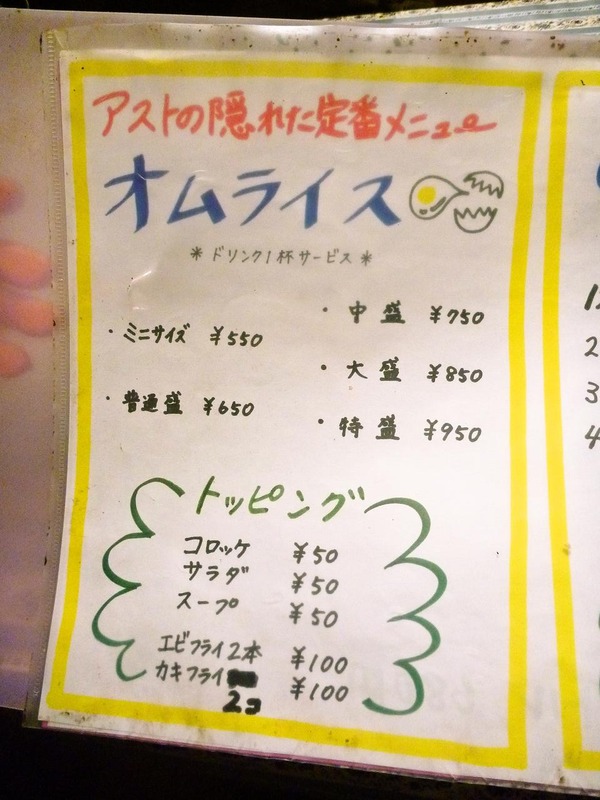 アストの隠れた定番メニュー
オムライス
＊ドリンク1杯サービス＊
・ミニサイズ ¥550
・普通盛 ¥650
・中盛 ¥750
・大盛 ¥850
・特盛 ¥950
トッピング
コロッケ ¥50
サラダ ¥50
スープ ¥50
エビフライ2本 ¥100
カキフライ ¥100
2コ
1
2
3
4